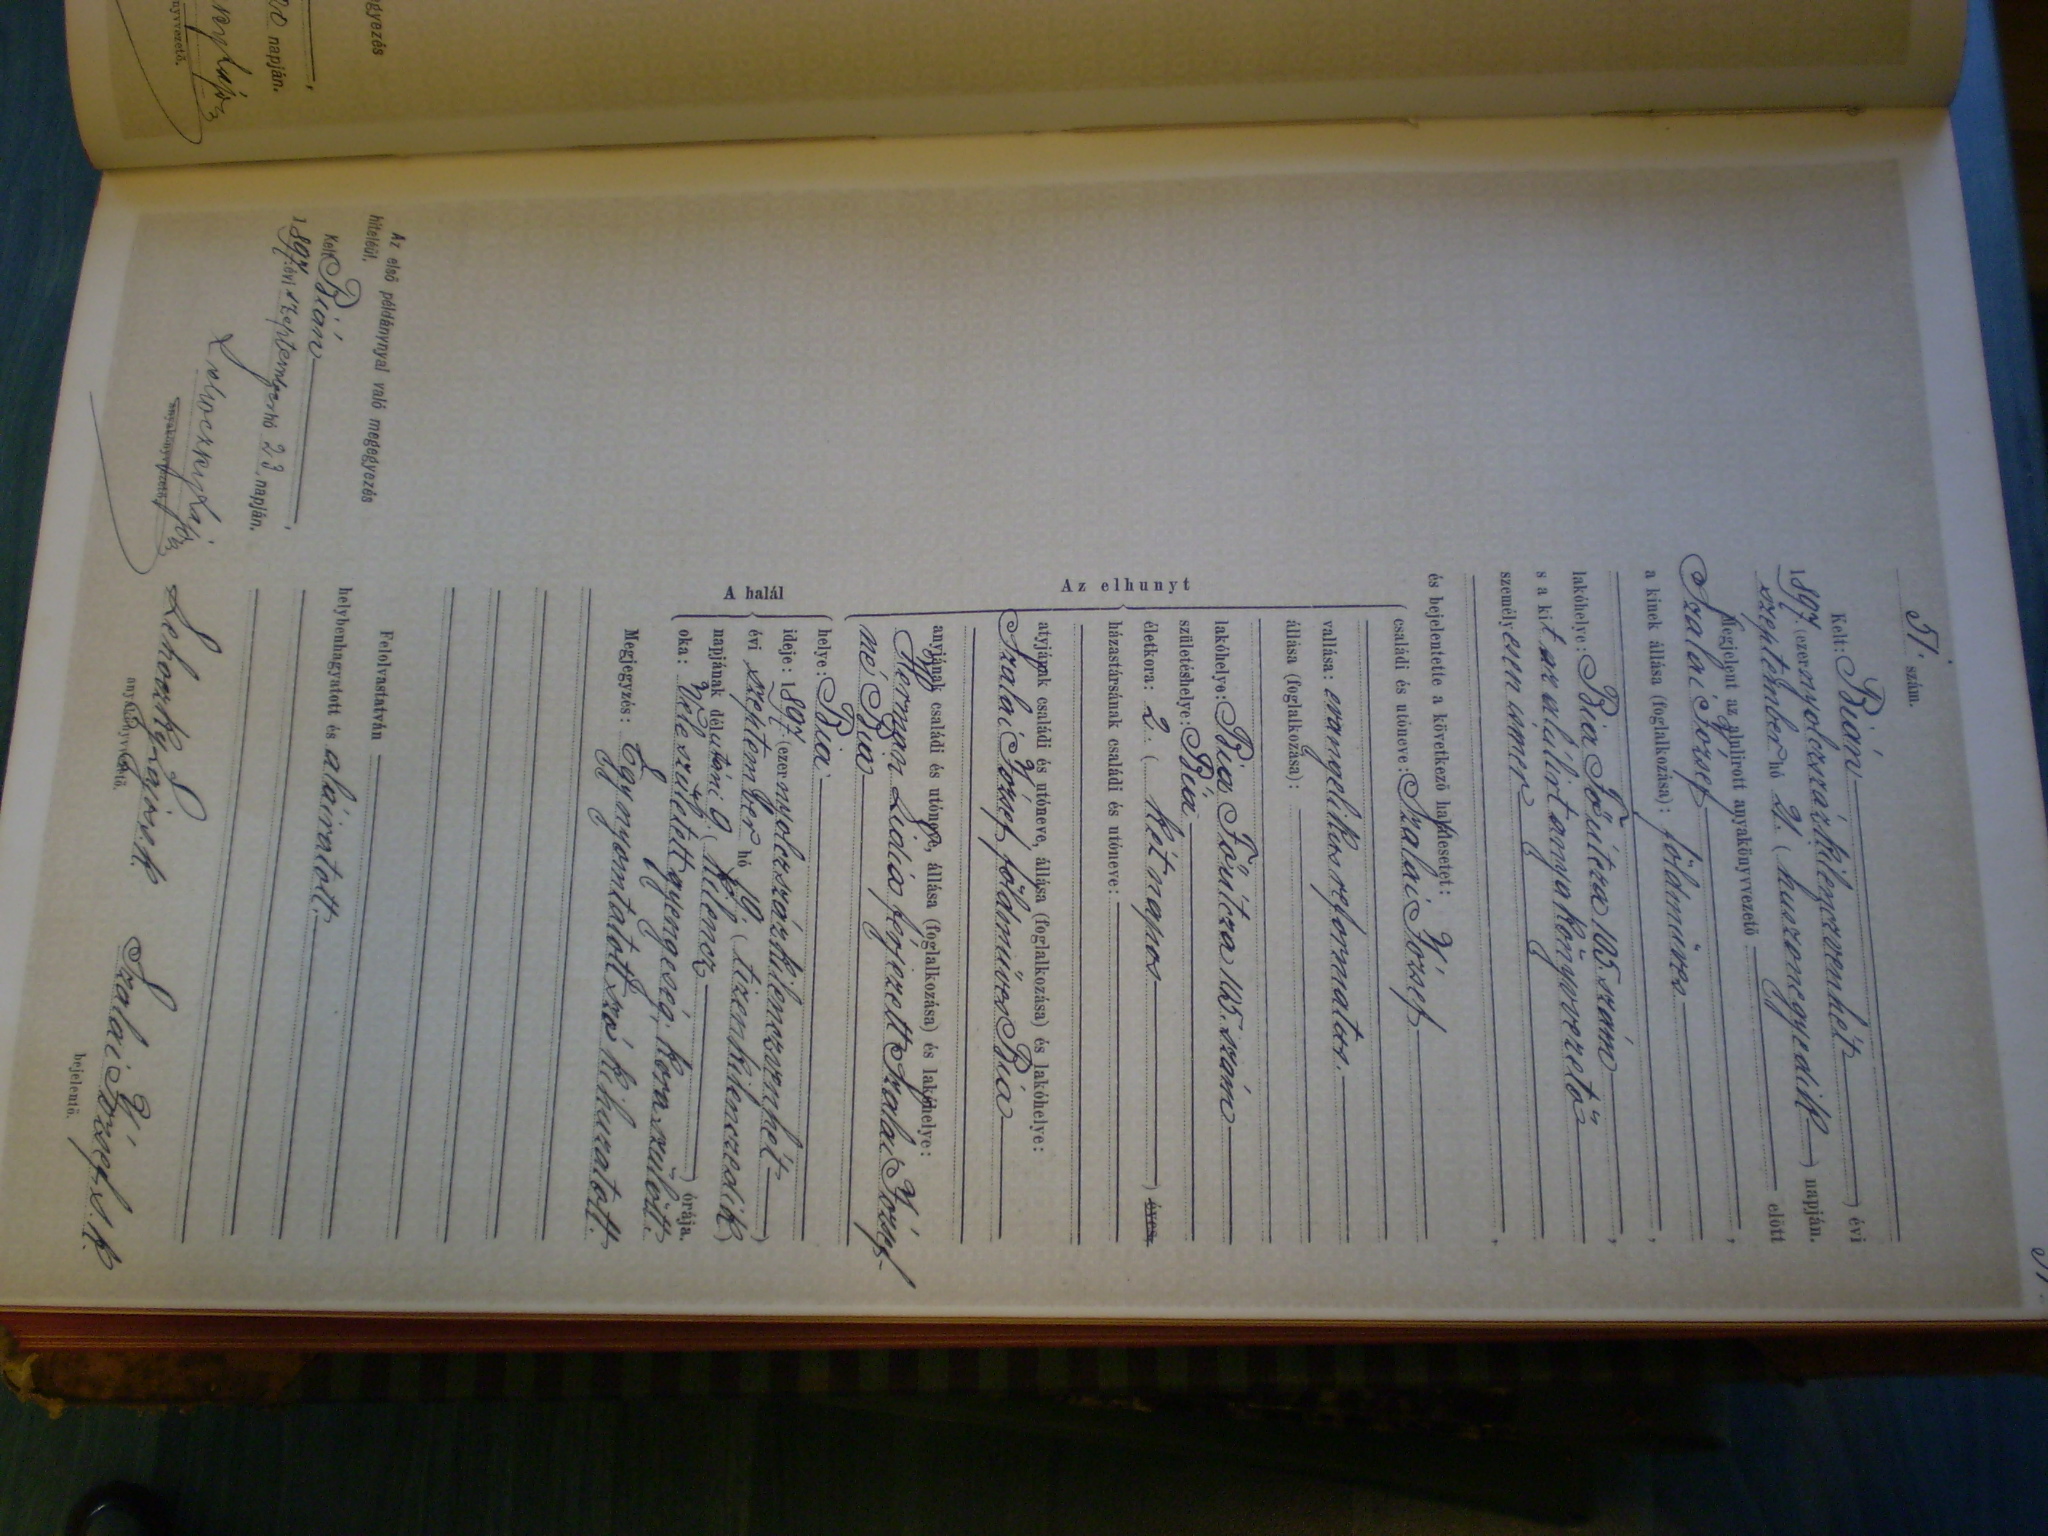 51. szám.
Kelt: Bián évi
1897. (ezernyolczszázkilenczvenhét)
szeptember hó 21. (huszonegyedik) napján.
Megjelent az alulírott anyakönyvvezető előtt
Szalai V. József,
a kinek állása (foglalkozása): földmüves,
lakóhelye: Bia Főutcza 105. szám,
s a kit az alulirt anyakönyvvezető
személyesen ismer,
és bejelentette a következő halálesetet:
Az elhunyt
családi és utóneve: Szalai V. József
vallása: evangelikus reformatus.
állása (foglalkozása):
lakóhelye: Bia Főutcza 105. szám
születéshelye: Bia.
életkora: 2. (két napos) éves
házastársának családi és utóneve:
atyjának családi és utóneve, állása (foglalkozása) és lakóhelye:
Szalai V. József földmüves Bia
anyjának családi és utóneve, állása (foglalkozása) és lakóhelye:
Herman Lidia férjezett Szalai V. József-
né. Bia
A halál
helye: Bia.
ideje: 1897. (ezernyolczszázkilenczvenhét)
évi szeptember hó 19. (tizenkilenczedik)
napjának délutáni 9. (kilencz) órája.
oka: Vele született gyengeség, kora szülött.
Megjegyzés: Egy nyomtatott szó kihuzatott.
Felolvastatván
helybenhagyatott és aláiratott.
Lehoczky Lajos s. k.
anyakönyvvezető.
Szalai V. József s. k.
bejelentő.
Az első példánynyal való megegyezés
hiteléül.
Kelt Bián,
1897. évi szeptember hó 23. napján.
Lehoczky Lajos
anyakönyvvezető.
egyezés
napján.
nyvvezető.